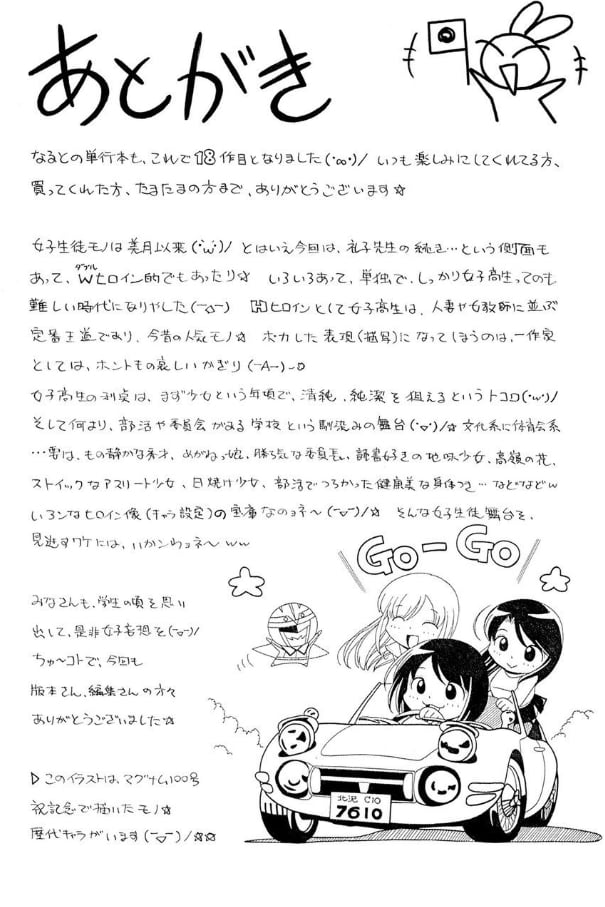 あとがき
なるとの単行本も、これで18作目となりました(･∞･)/ いつも楽しみにしてくれてる方、
買ってくれた方、たまたまの方まで、ありがとうございます☆
女子生徒モノは美月以来(･ω･)/ とはいえ今回は、礼子先生の続き…という側面も
あって、Wヒロイン的でもあったり☆ いろいろあって、単独で、しっかり女子高生ってのも
ダブル
難しい時代になりやした(ー△ー) Hヒロインとして女子高生は、人妻や女教師に並ぶ
定番王道であり、今昔の人気モノ☆ ボカした表現(描写)になってしまうのは、一作家
としては、ホントもの哀しいかぎり(ーAー)
女子高生の利点は、まず少女という年頃で、清純、純潔を狙えるというトコロ(･ω･)/
そして何より、部活や委員会がある学校という馴染みの舞台(･▽･)/☆ 文化系に体育会系
…更は、もの静かな秀才、めがねっ娘、勝ち気な委員長、読書好きの地味少女、高嶺の花、
ストイックなアスリート少女、日焼け少女、部活でつちかった健康美な身体つき…などなどw
いろンなヒロイン像(キャラ設定)の宝庫なのョネ〜(ー▽ー)/☆ そんな女子生徒舞台を、
見逃すワケには、いかンわョネ〜ww
GO-GO
みなさんも、学生の頃を思い
出して、是非女子妄想を(ー▽ー)/
ちゅ〜コトで、今回も
版本さん、編集さんの方々
ありがとうございました☆
▷このイラストは、マグナム100号
祝記念で描いたモノ☆
歴代キャラがいます(ー▽ー)/☆☆
北泥 C10
7610